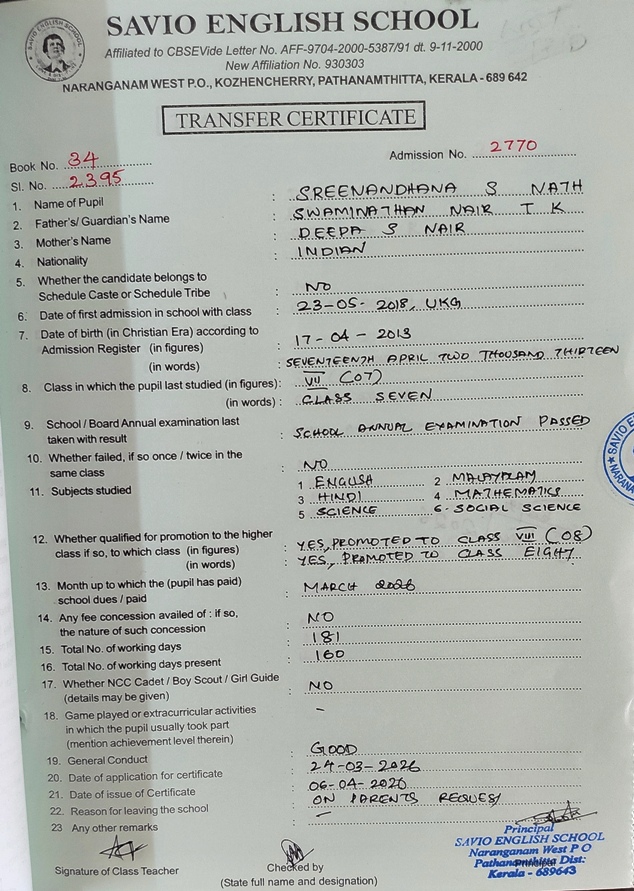 SAVIO ENGLISH SCHOOL
Affiliated to CBSEVide Letter No. AFF-9704-2000-5387/91 dt. 9-11-2000
New Affiliation No. 930303
NARANGANAM WEST P.O., KOZHENCHERRY, PATHANAMTHITTA, KERALA - 689 642
TRANSFER CERTIFICATE
Book No. 34
Admission No. 2770
Sl. No. 2395
1. Name of Pupil : SREENANDHANA S NATH
2. Father's/ Guardian's Name : SWAMINATHAN NAIR T K
3. Mother's Name : DEEPA S NAIR
4. Nationality : INDIAN
5. Whether the candidate belongs to
Schedule Caste or Schedule Tribe : NO
6. Date of first admission in school with class : 23-05-2018, UKG
7. Date of birth (in Christian Era) according to
Admission Register (in figures) : 17-04-2013
(in words) : SEVENTEENTH APRIL TWO THOUSAND THIRTEEN
8. Class in which the pupil last studied (in figures): VII (07)
(in words) : CLASS SEVEN
9. School / Board Annual examination last
taken with result : SCHOOL ANNUAL EXAMINATION PASSED
10. Whether failed, if so once / twice in the
same class : NO
11. Subjects studied : 1 ENGLISH 2 MALAYALAM
3 HINDI 4 MATHEMATICS
5 SCIENCE 6 SOCIAL SCIENCE
12. Whether qualified for promotion to the higher
class if so, to which class (in figures) : YES, PROMOTED TO CLASS VIII (08)
(in words) : YES, PROMOTED TO CLASS EIGHT
13. Month up to which the (pupil has paid)
school dues / paid : MARCH 2026
14. Any fee concession availed of : if so,
the nature of such concession : NO
15. Total No. of working days : 181
16. Total No. of working days present : 160
17. Whether NCC Cadet / Boy Scout / Girl Guide
(details may be given) : NO
18. Game played or extracurricular activities
in which the pupil usually took part
(mention achievement level therein) : -
19. General Conduct : GOOD
20. Date of application for certificate : 24-03-2026
21. Date of issue of Certificate : 06-04-2026
22. Reason for leaving the school : ON PARENTS REQUEST
23 Any other remarks : -
Signature of Class Teacher
Checked by
(State full name and designation)
Principal
SAVIO ENGLISH SCHOOL
Naranganam West P O
Pathanamthitta Dist:
Kerala - 689643